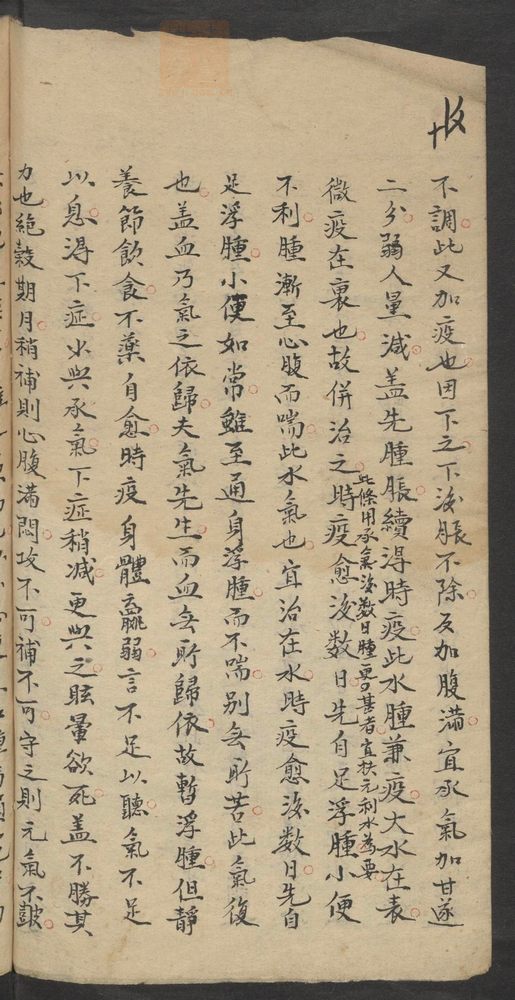 不調此又加疫也因下之下後脹不除反加腹滿宜承氣加甘遂
二分弱人量減盖先腫脹續得時疫此水腫兼疫大水在表
微疫在裏也故併治之此條用承氣後数日腫更甚者宜扶元利水為要時疫愈後数日先自足浮腫小便
不利腫漸至心腹而喘此水氣也宜治在水時疫愈後数日先自
足浮腫小便如常雖至通身浮腫而不喘别無所苦此氣復
也盖血乃氣之依歸夫氣先生而血無所歸依故暫浮腫但靜
養節飲食不藥自愈時疫身體羸弱言不足以聽氣不足
以息得下症少與承氣下症稍减更與之眩暈欲死盖不勝其
力也絶穀期月稍補則心腹滿悶攻不可補不可守之則元氣不鼓